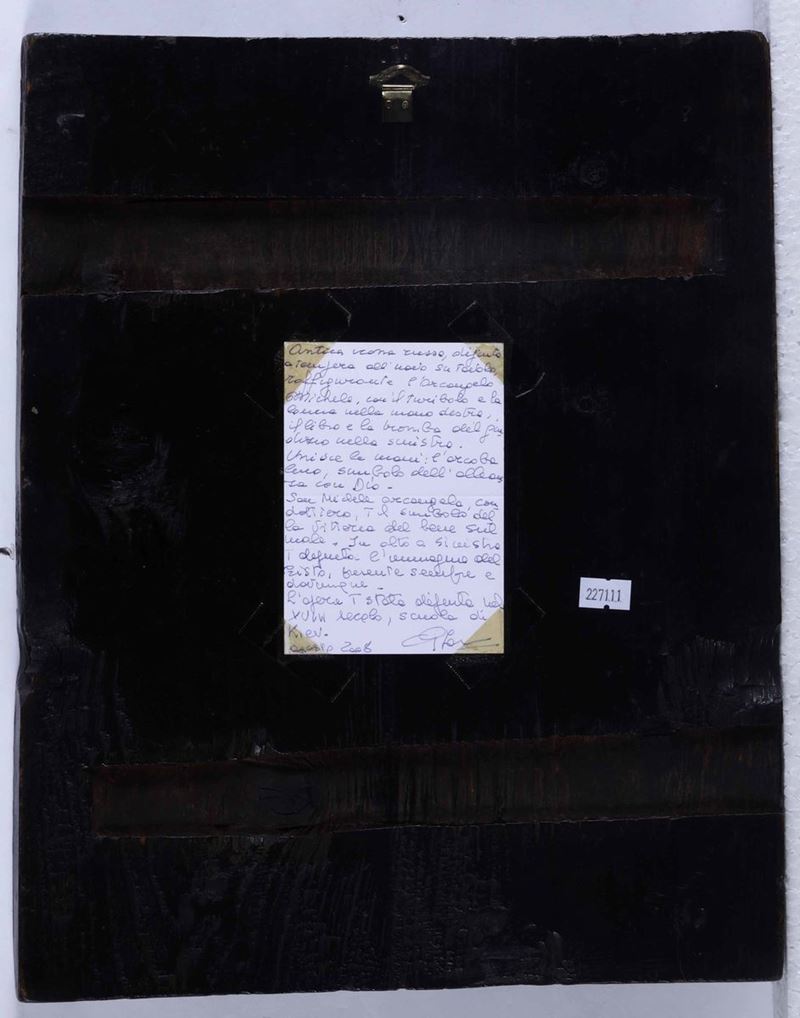 Antica icona russa, dipinta
a tempera all'uovo su tavola
raffigurante l'Arcangelo
Michele, con il turibolo e la
lancia nella mano destra,
il libro e la tromba del giu
dizio nella sinistra.
Unisce le mani: l'arcoba
leno, simbolo dell'allean
za con Dio -
San Michele arcangelo, con
dottiero, è il simbolo del
la vittoria del bene sul
male. In alto a sinistra
è dipinta l'immagine del
Cristo, presente sempre e
dovunque.
L'opera è stata dipinta nel
XVIII secolo, scuola di
Kiev.
2008
2271.11